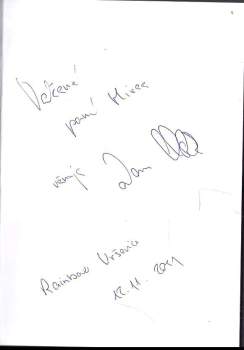 Vážené
paní
věnuje Jan
Rainbow Vršovice
12.11.2011